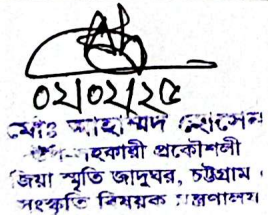 ০২/০২/২৫
মোঃ আহাম্মদ হোসেন
উপ-সহকারী প্রকৌশলী
জিয়া স্মৃতি জাদুঘর, চট্টগ্রাম।
সংস্কৃতি বিষয়ক মন্ত্রণালয়।